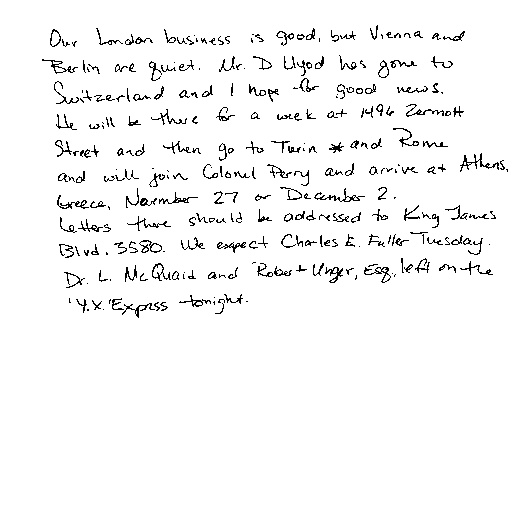 Our London business is good, but Vienna and
Berlin are quiet. Mr. D Llyod has gone to
Switzerland and I hope for good news.
He will be there for a week at 1496 Zermott
Street and then go to Turin and Rome
and will join Colonel Perry and arrive at Athens,
Greece, November 27 or December 2.
Letters there should be addressed to King James
Blvd. 3580. We expect Charles E. Fuller Tuesday.
Dr. L. McQuaid and Robert Unger, Esq., left on the
'Y.X.' Express tonight.